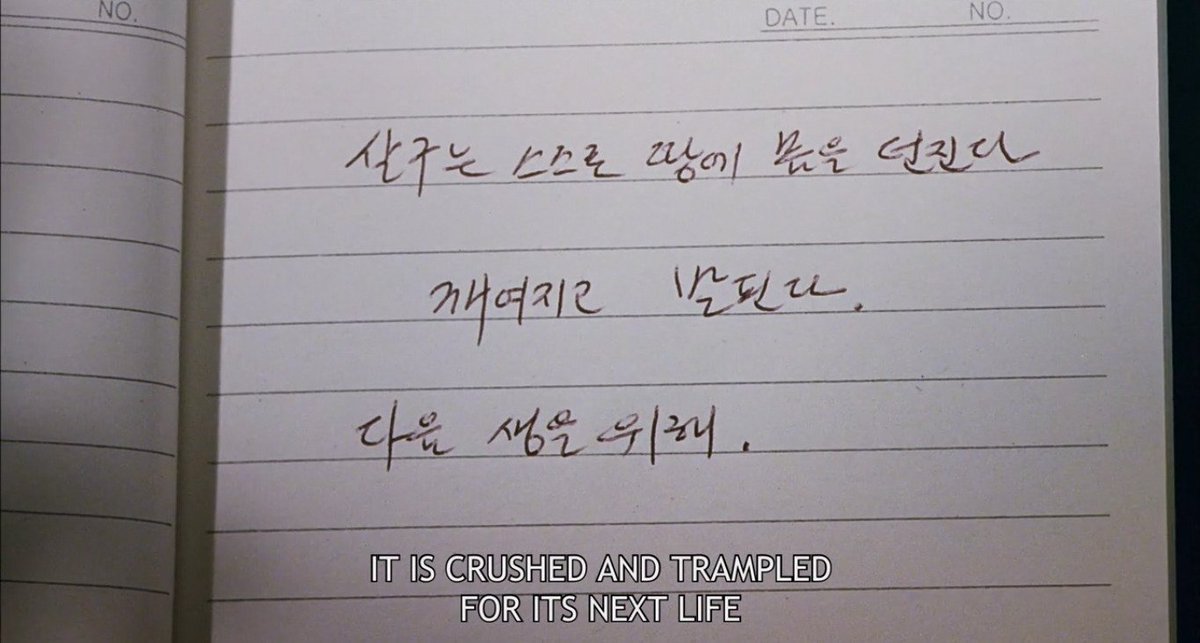 NO.
DATE. NO.
살구는 스스로 땅에 몸을 던진다
깨여지고 밟힌다.
다음 생을 위해.
IT IS CRUSHED AND TRAMPLED
FOR ITS NEXT LIFE